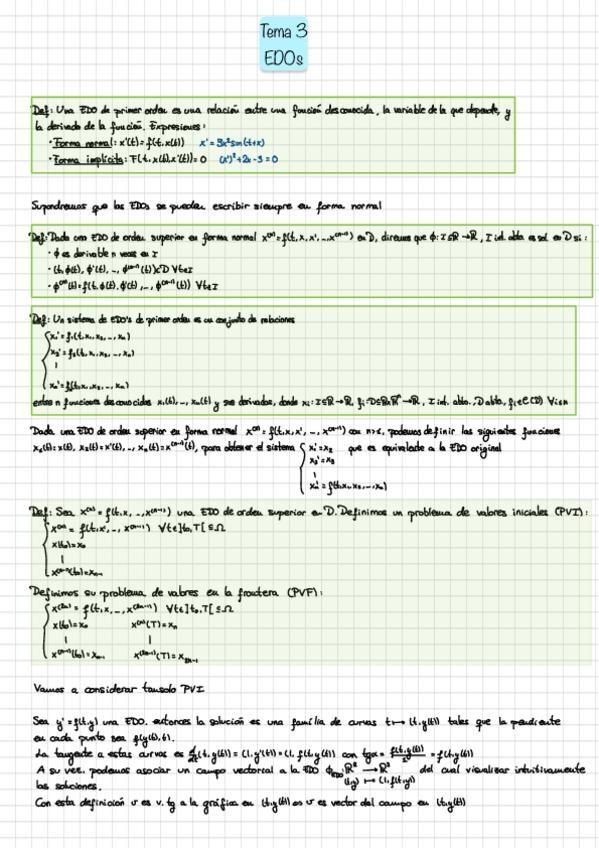 Tema 3
EDOs
Def: Una EDO de primer orden es una relación entre una función desconocida, la variable de la que depende, y
la derivada de la función. Expresiones:
· Forma normal: x'(t)=f(t,x(t)) x'=3x²sin(t+x)
· Forma implícita: F(t,x(t),x'(t))=0 (x')²+2x-3=0
Supondremos que las EDOs se pueden escribir siempre en forma normal
Def: Dada una EDO de orden superior en forma normal x⁽ⁿ⁾=f(t,x,x',...,x⁽ⁿ⁻¹⁾) en D, diremos que ϕ:I⊆R→R, I int. abto es sol. en D si:
· ϕ es derivable n veces en I
· (t,ϕ(t),ϕ'(t),...,ϕ⁽ⁿ⁻¹⁾(t))∈D ∀t∈I
· ϕ⁽ⁿ⁾(t)=f(t,ϕ(t),ϕ'(t),...,ϕ⁽ⁿ⁻¹⁾(t)) ∀t∈I
Def: Un sistema de EDO's de primer orden es un conjunto de relaciones
x₁'=f₁(t,x₁,x₂,...,xₙ)
x₂'=f₂(t,x₁,x₂,...,xₙ)
xₙ'=fₙ(t,x₁,x₂,...,xₙ)
entre n funciones desconocidas x₁(t),...,xₙ(t) y sus derivadas, donde xᵢ:I⊆R→R, fᵢ:D⊆RxRⁿ→R, I int. abto., D abto, fᵢ∈C(D) ∀i≤n
Dada una EDO de orden superior en forma normal x⁽ⁿ⁾=f(t,x,x',...,x⁽ⁿ⁻¹⁾) con n>1, podemos definir las siguientes funciones
x₁(t)=x(t), x₂(t)=x'(t),...,xₙ(t)=x⁽ⁿ⁻¹⁾(t), para obtener el sistema x₁'=x₂ que es equivalente a la EDO original
x₂'=x₃
xₙ'=f(t,x₁,x₂,...,xₙ)
Def: Sea x⁽ⁿ⁾=f(t,x,...,x⁽ⁿ⁻¹⁾) una EDO de orden superior en D. Definimos un problema de valores iniciales (PVI):
x⁽ⁿ⁾=f(t,x',...,x⁽ⁿ⁻¹⁾) ∀t∈]t₀,T[⊆Ω
x(t₀)=x₀
x⁽ⁿ⁻¹⁾(t₀)=xₙ₋₁
Definimos su problema de valores en la frontera (PVF):
x⁽²ⁿ⁾=f(t,x,...,x⁽²ⁿ⁻¹⁾) ∀t∈]t₀,T[⊆Ω
x(t₀)=x₀ x⁽ⁿ⁾(T)=xₙ
x⁽ⁿ⁻¹⁾(t₀)=xₙ₋₁ x⁽²ⁿ⁻¹⁾(T)=x₂ₙ₋₁
Vamos a considerar tan solo PVI
Sea y'=f(t,y) una EDO. entonces la solución es una familia de curvas t↦(t,y(t)) tales que la pendiente
en cada punto sea f(y(t),t).
La tangente a estas curvas es d/dt(t,y(t))=(1,y'(t))=(1,f(t,y(t)) con tgα=f(t,y(t))/1=f(t,y(t))
A su vez, podemos asociar un campo vectorial a la EDO ϕ R²→R² del cual visualizar intuitivamente
(t,y)↦(1,f(t,y))
las soluciones.
Con esta definición v es v. tg a la gráfica en (t,y(t)) ⇔ v es vector del campo en (t,y(t))